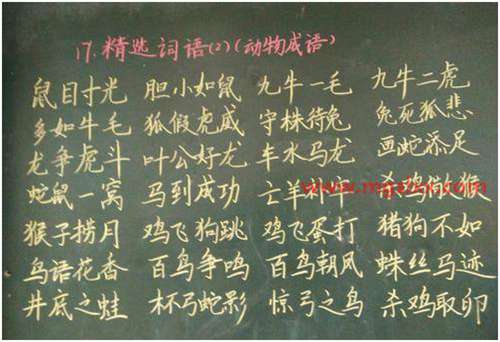 17.精选词语(2)(动物成语)
鼠目寸光 胆小如鼠 九牛一毛 九牛二虎
多如牛毛 狐假虎威 守株待兔 兔死狐悲
龙争虎斗 叶公好龙 车水马龙 画蛇添足
蛇鼠一窝 马到成功 亡羊补牢 杀鸡儆猴
猴子捞月 鸡飞狗跳 鸡飞蛋打 猪狗不如
鸟语花香 百鸟争鸣 百鸟朝风 蛛丝马迹
井底之蛙 杯弓蛇影 惊弓之鸟 杀鸡取卵